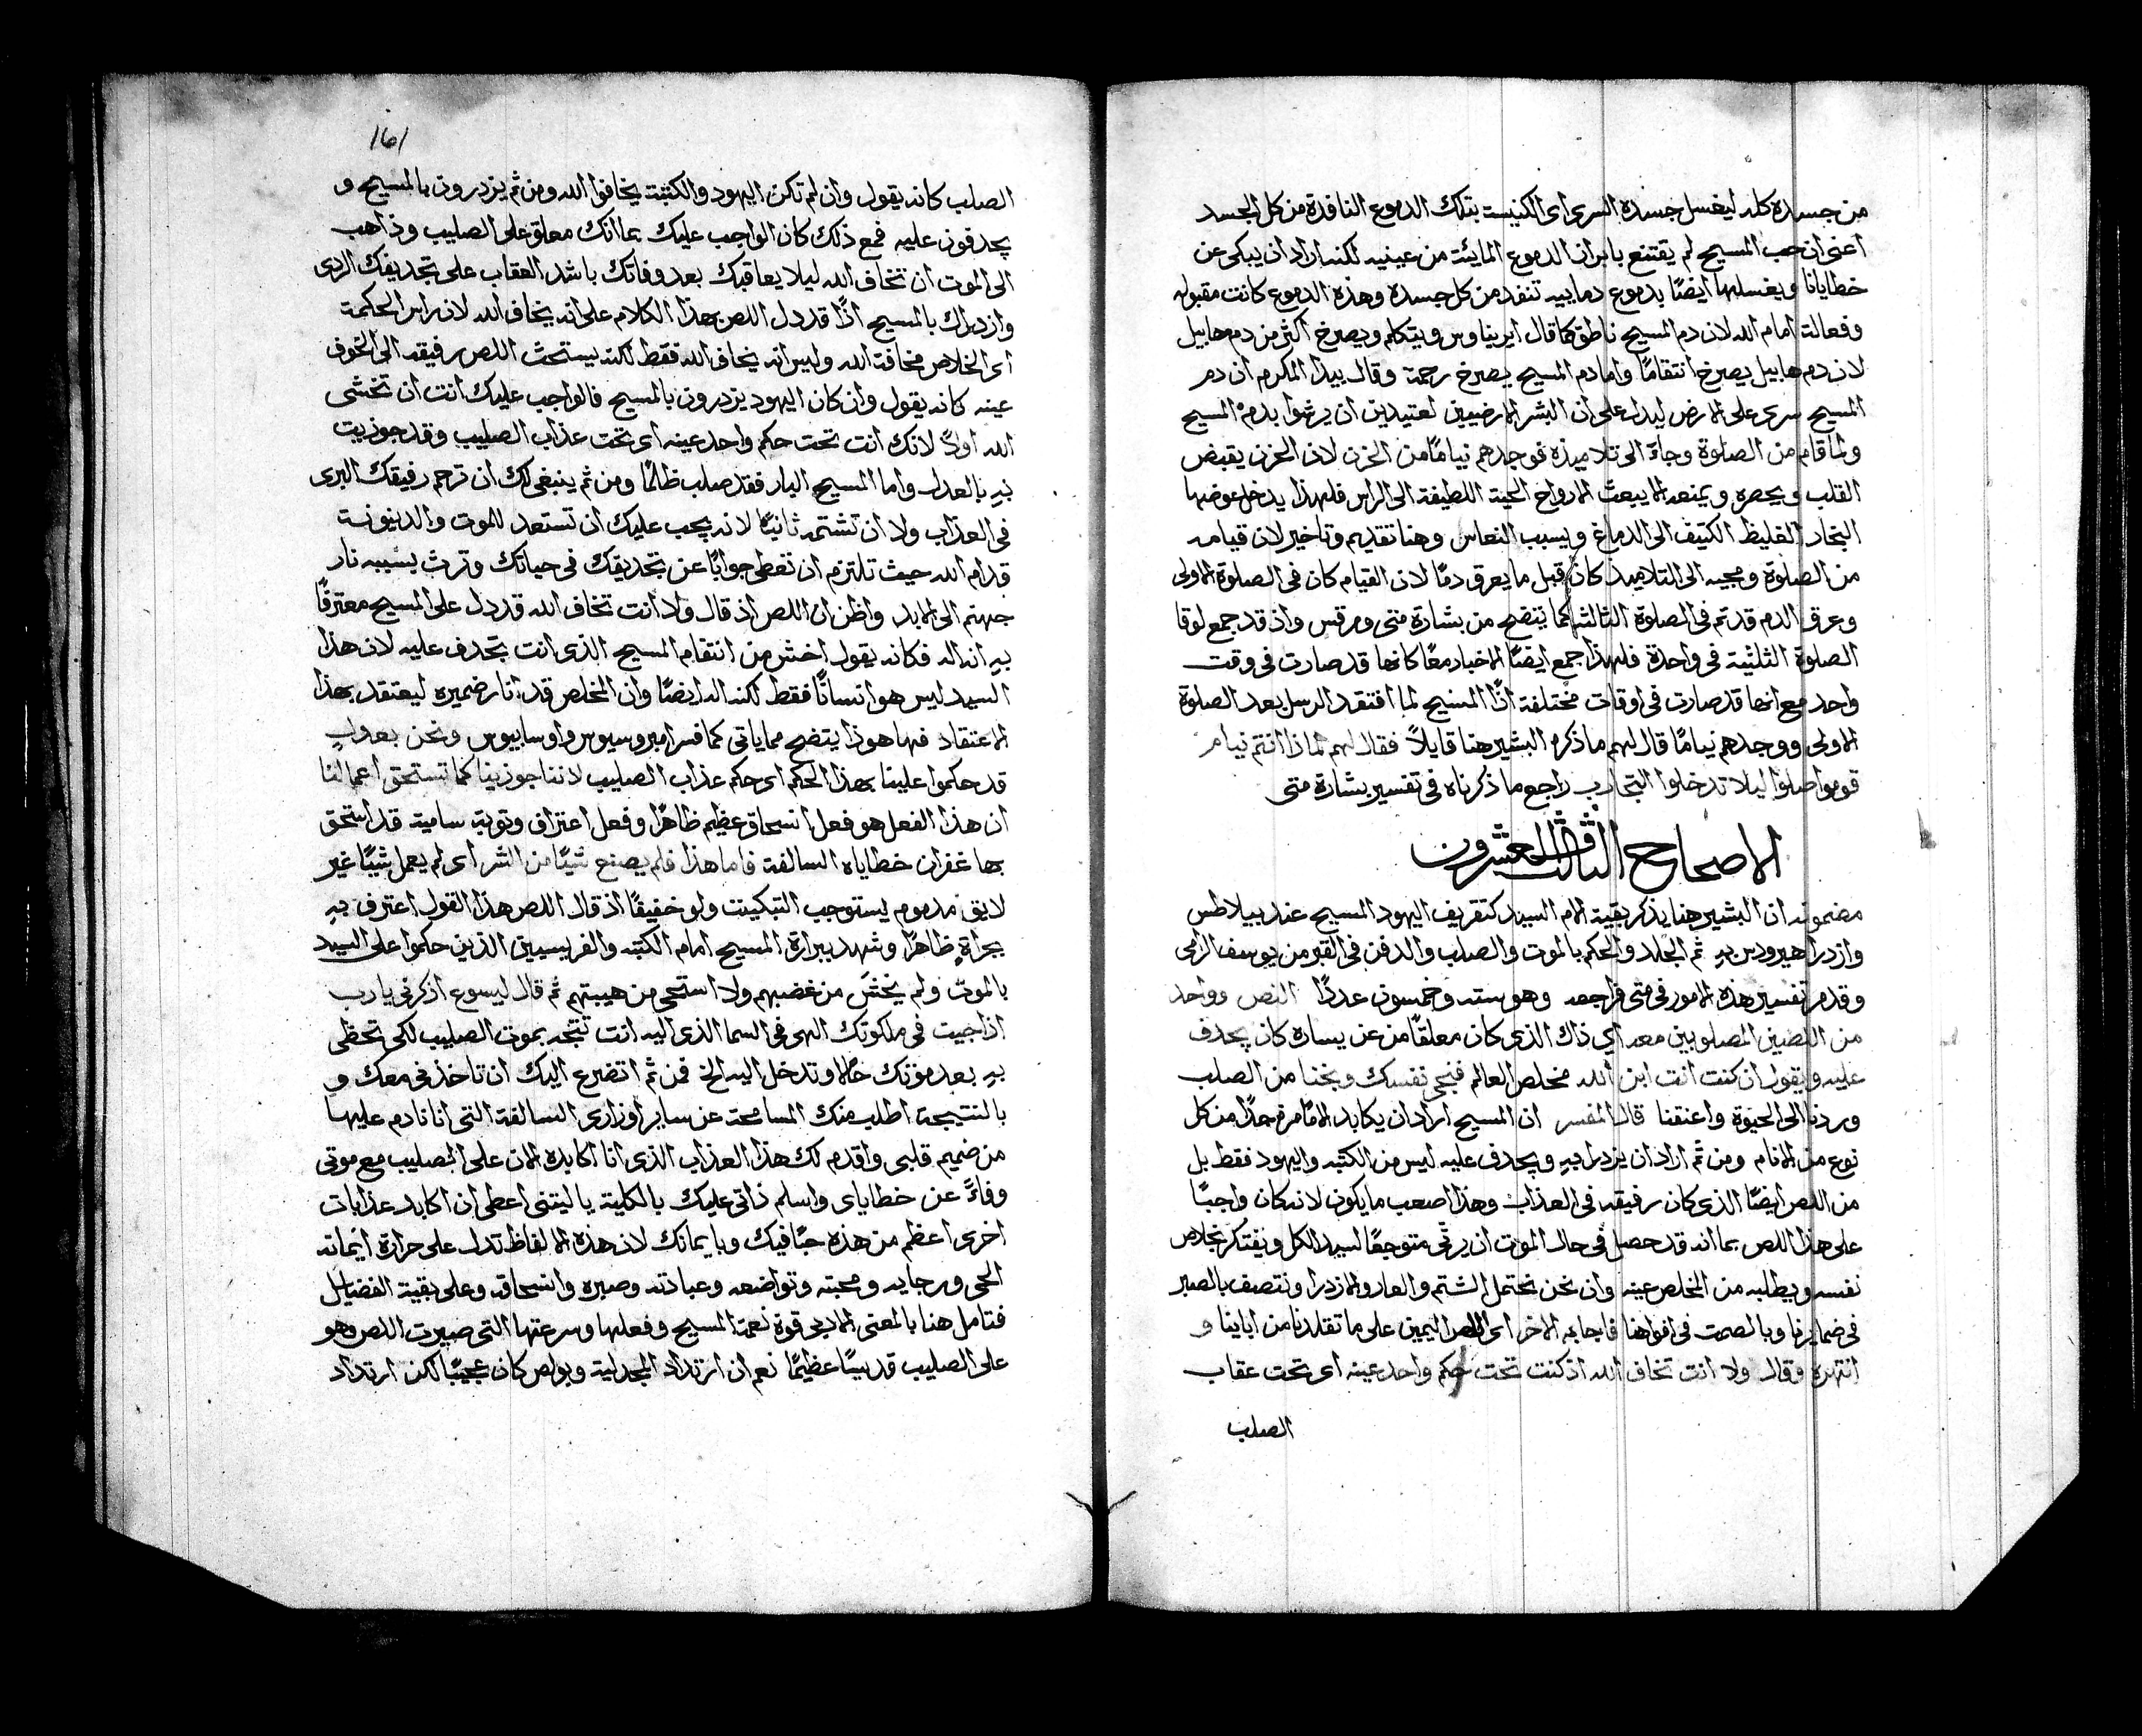 من جسده كله ليغسل جسده السرى اى الكنيسة بتلك الدموع النافدة من كل الجسد
اعنى ان حب المسيح لم يقتنع بابراز الدموع المايئة من عينيه لكنه اراد ان يبكى عن
خطايانا ويغسلها ايضًا بدموع دمايية تنفد من كل جسده وهذه الدموع كانت مقبوله
وفعالة امام الله لان دم المسيح ناطق كما قال ايريناوس ويتكلم ويصرخ اكثر من دم هابيل
لان دم هابيل يصرخ انتقامًا واما دم المسيح يصرخ رحمة وقال بيدا المكرم ان دم
المسيح سرى على الارض ليدل على ان البشر الارضيين لعتيدين ان يرشوا بدم المسيح
ولما قام من الصلوة وجاء الى تلاميذه فوجدهم نيامًا من الحزن لان الحزن يقبض
القلب ويحصره ويمنعه الا يبعث الارواح الحية اللطيفة الى الراس فلهذا يدخل عوضها
البخار الغليظ الكثيف الى الدماغ ويسبب النعاس وهنا تقديم وتاخير لان قيامه
من الصلوة ومجيه الى التلاميذ كان قبل ما يعرق دمًا لان القيام كان فى الصلوة الاولى
وعرق الدم قد تم فى الصلوة الثالثه كما يتضح من بشارة متى ومرقس واذ قد جمع لوقا
الصلوة الثلثة فى واحدة فلهذا جمع ايضًا الاخبار معًا كانها قد صارت فى وقت
واحد مع انها قد صارت فى اوقات مختلفة اذًا المسيح لما افتقد الرسل بعد الصلوة
الاولى ووجدهم نيامًا قال لهم ما ذكره البشير هنا قايلاً فقال لهم لماذا انتم نيام
قوموا صلوا ليلا تدخلوا التجارب راجع ما ذكرناه فى تفسير بشارة متى
الاصحاح الثالث والعشرون
مضمونه ان البشير هنا يذكر بقية الام السيد كتقريف اليهود المسيح عند بيلاطس
وازدرا هيرودس به ثم الجلد والحكم بالموت والصلب والدفن فى القبر من يوسف الرامى
وقدم تفسير هذه الامور فى متى فراجعه وهو سته وخمسون عددًا النص وواحد
من اللصين المصلوبين معه اي ذاك الذى كان معلقًا من عن يساره كان يجدف
عليه ويقول ان كنت انت ابن الله مخلص العالم فنجى نفسك ونجنا من الصلب
وردنا الى الحيوة واعتقنا قال المفسر ان المسيح اراد ان يكابد الامًا مرة جدًا من كل
نوع من الانام ومن ثم اراد ان يزدرا به ويجدف عليه ليس من الكتبه واليهود فقط بل
من اللص ايضًا الذى كان رفيقه فى العذاب وهذا اصعب ما يكون لانه كان واجبًا
على هذا اللص بما انه قد حصل فى حال الموت ان يرثى متوجعًا لسيد الكل ويفتكر بخلاص
نفسه ويطلبه من المخلص عينه وان نحن نحتمل الشتم والعار والازدرا ونتصف بالصبر
فى ضمايرنا وبالصمت فى افواهنا فاجابه الاخر اى اللص اليمين على ما تقلدنا من اباينا و
انتهره وقال ولا انت تخاف الله اذ كنت تحت حكم واحد عينه اى تحت عقاب
الصلب
161
الصلب كانه يقول وان لم تكن اليهود والكتبة يخافوا الله ومن ثم يزدرون بالمسيح و
يجدفون عليه فمع ذلك كان الواجب عليك بما انك معلق على الصليب وذاهب
الى الموت ان تخاف الله ليلا يعاقبك بعد وفاتك باشد العقاب على تجديفك الردى
وازدراك بالمسيح اذًا قد دل اللص بهذا الكلام على انه يخاف الله لان راس الحكمة
اى الخلاص مخافة الله وليس انه يخاف الله فقط لكنه يستحث اللص رفيقه الى الخوف
عينه كانه يقول وان كان اليهود يزدرون بالمسيح فالواجب عليك انت ان تخشى
الله اولاً لانك انت تحت حكم واحد عينه اى تحت عذاب الصليب وقد جوزيت
به بالعدل واما المسيح البار فقد صلب ظالمًا ومن ثم ينبغى لك ان ترحم رفيقك البرى
فى العذاب ولا ان تشتمه ثانيًا لانه يجب عليك ان تستعد للموت والدينونة
قدام الله حيث تلتزم ان تعطى جوابًا عن تجديفك فى حياتك وترث بسببه نار
جهنم الى الابد واظن ان اللص اذ قال ولا انت تخاف الله قد دل على المسيح معترفًا
به انه اله فكانه يقول اخش من انتقام المسيح الذى انت تجدف عليه لان هذا
السيد ليس هو انسانًا فقط لكنه اله ايضًا وان المخلص قد انار ضميره ليعتقد بهذا
الاعتقاد فها هوذا يتضح مما ياتى كما فسر امبروسيوس واوسابيوس ونحن بعدلٍ
قد حكموا علينا بهذا الحكم اى حكم عذاب الصليب لاننا جوزينا كما تستحق اعمالنا
ان هذا الفعل هو فعل انسحاق عظيم ظاهرًا وفعل اعتراف وتوبة سامية قد استحق
بها غفران خطاياه السالفة فاما هذا فلم يصنع شيًا من الشر اى لم يعمل شيًا غير
لايق مذموم يستوجب التبكيت ولو خفيفًا اذ قال اللص هذا القول اعترف به
بجراةٍ ظاهرًا وشهد ببرارة المسيح امام الكتبه والفريسيين الذين حكموا على السيد
بالموت ولم يخش من غضبهم ولا استحى من هيبتهم ثم قال ليسوع اذكرنى يارب
اذا جيت فى ملكوتك الهى فى السما الذى اليه انت تتجه بموت الصليب لكى تحظى
به بعد موتك حالاً وتدخل اليه الخ فمن ثم اتضرع اليك ان تاخذنى معك و
بالنتيجة اطلب منك المسامحة عن ساير اوزارى السالفة التى انا نادم عليها
من صميم قلبى واقدم لك هذا العذاب الذى انا اكابده الان على الصليب مع موتى
وفاءً عن خطاياى واسلم ذاتى عليك بالكلية يا ليتنى اعطى ان اكابد عذابات
اخرى اعظم من هذه حبًا فيك وبايمانك لان هذه الالفاظ تدل على حرارة ايمانه
الحى ورجايه ومحبته وتواضعه وعبادته وصبره وانسحاقه وعلى بقية الفضايل
فتامل هنا بالمعنى الادبى قوة نعمة المسيح وفعلها وسرعتها التى صيرت اللص وهو
على الصليب قديسًا عظيمًا نعم ان ارتداد المجدلية وبولص كان عجيبًا لكن ارتداد